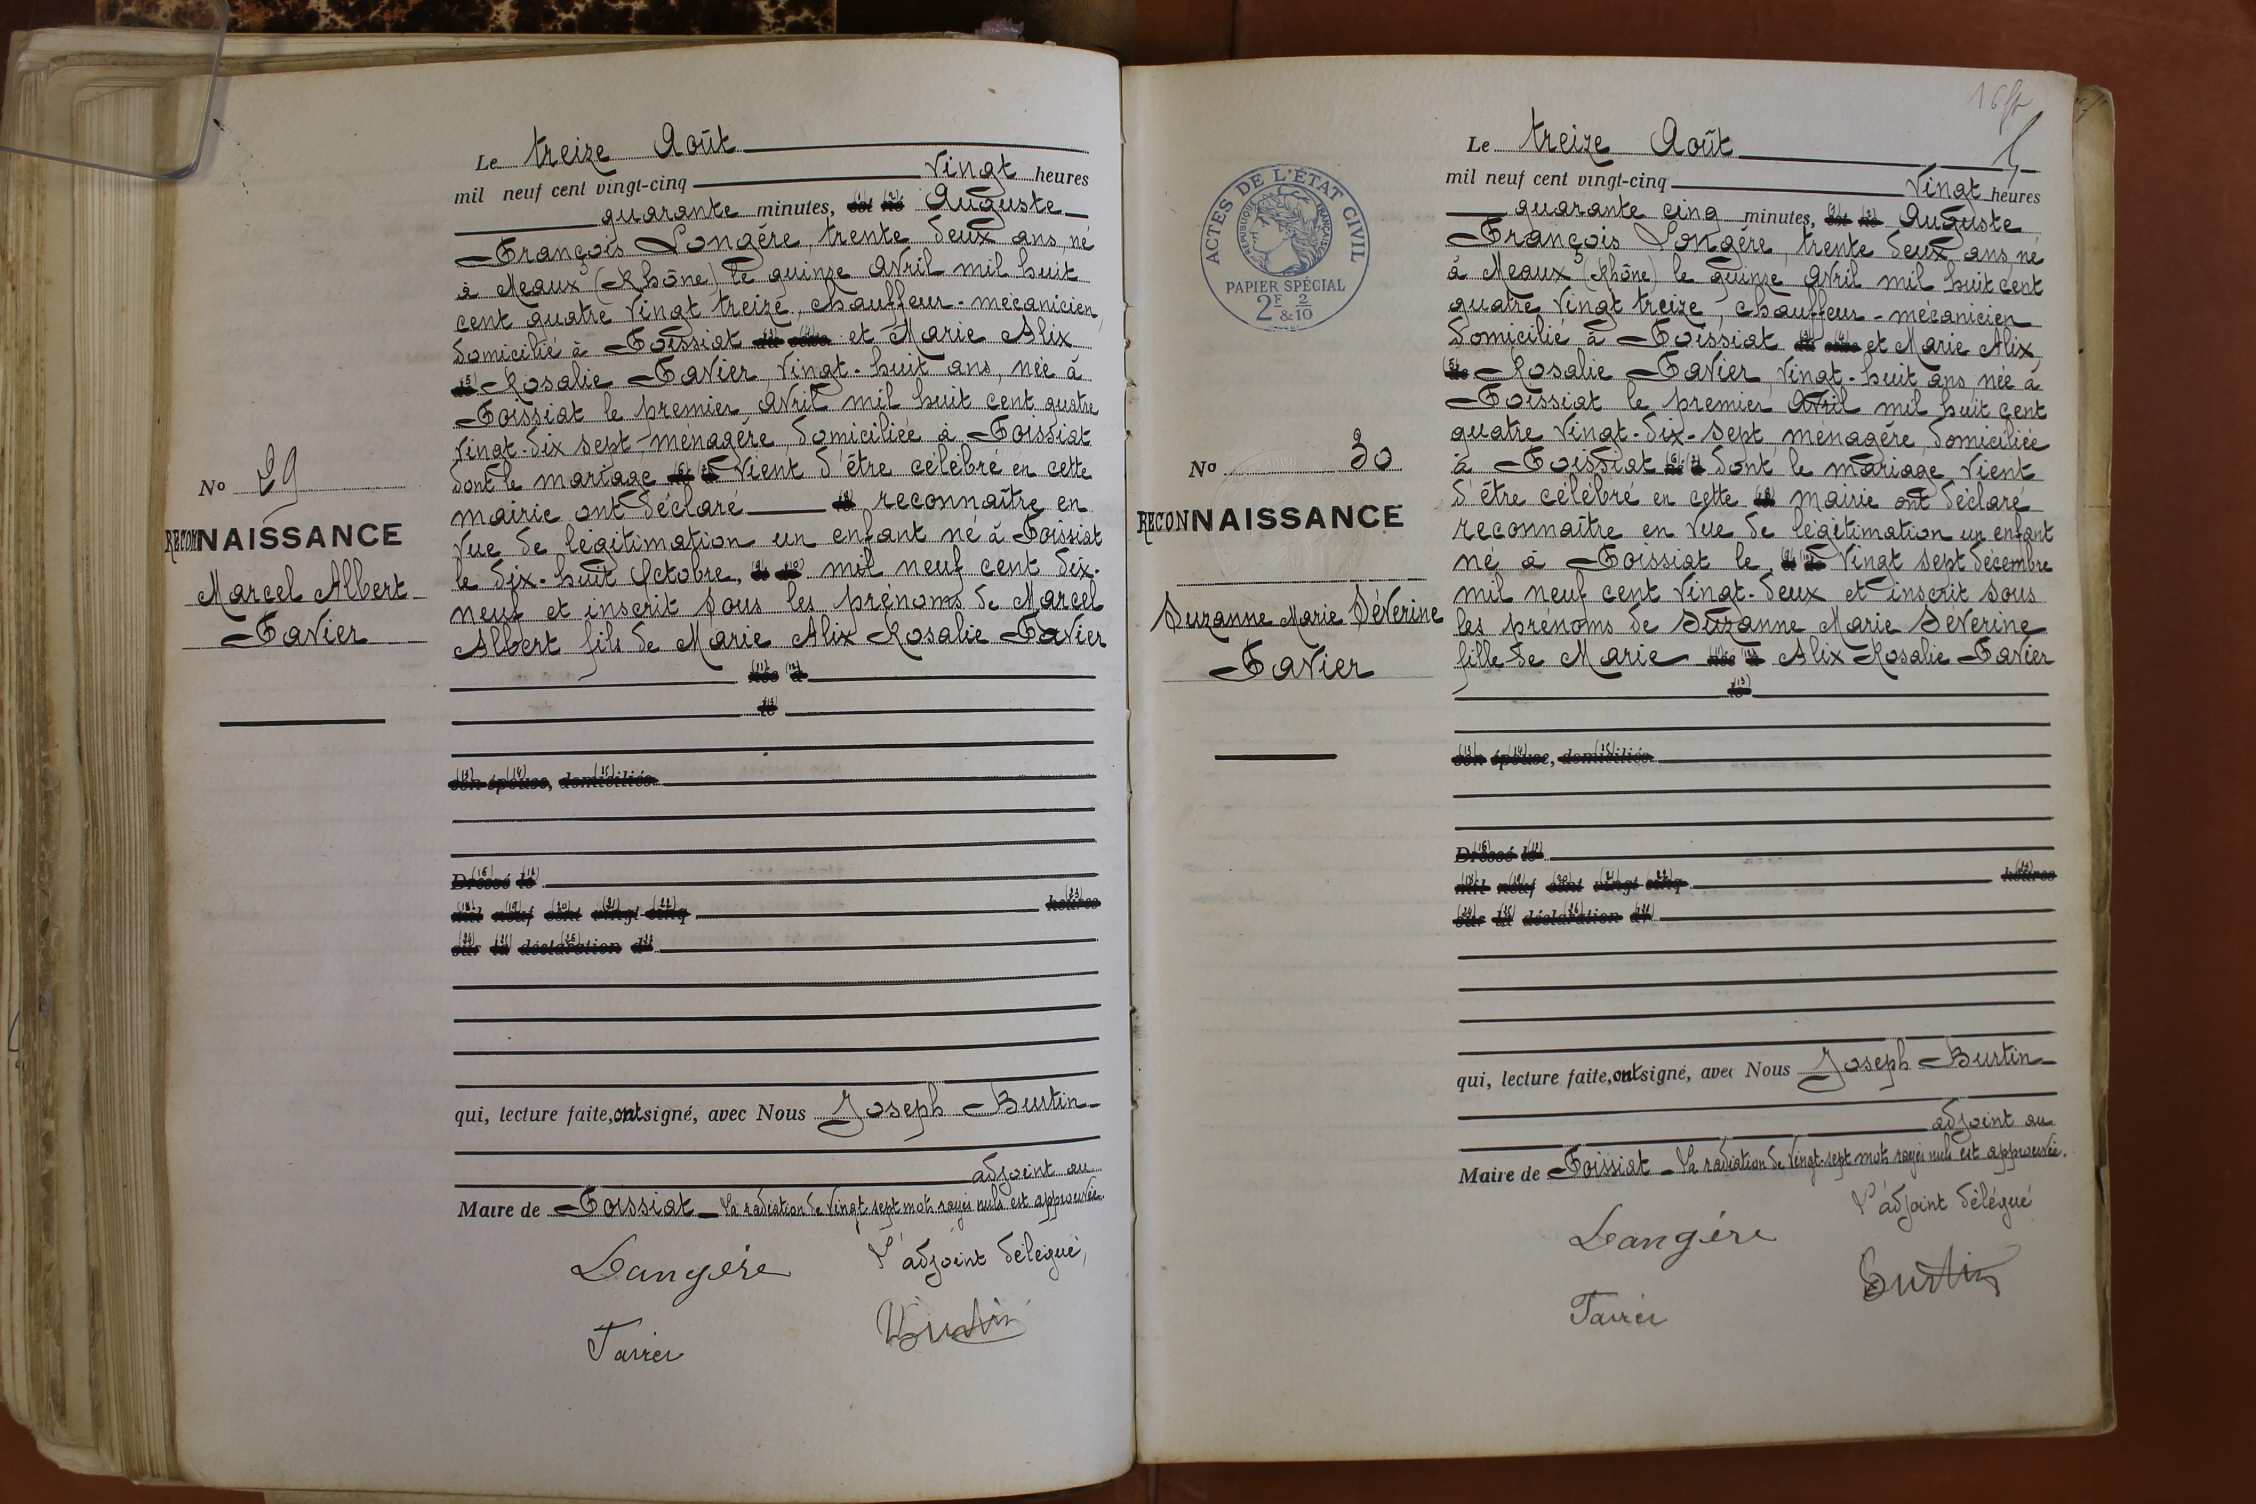 Le treize Août
mil neuf cent vingt-cinq vingt heures
quarante minutes, est né Auguste
François Longère, trente deux ans, né
à Meaux (Rhône) le quinze Avril mil huit
cent quatre vingt treize, chauffeur-mécanicien,
domicilié à Foissiat et Marie Alix
Rosalie Favier, vingt-huit ans, née à
Foissiat le premier Avril mil huit cent quatre
vingt-dix sept, ménagère, domiciliée à Foissiat
dont le mariage vient d'être célébré en cette
mairie ont déclaré reconnaître en
vue de légitimation un enfant né à Foissiat
le dix-huit Octobre, mil neuf cent dix-
neuf et inscrit sous les prénoms de Marcel
Albert fils de Marie Alix Rosalie Favier
née à
le
son épouse, domiciliés
Dressé le
mil neuf cent vingt-cinq heures
sur la déclaration de
qui, lecture faite, ont signé, avec Nous Joseph Burtin
adjoint au
Maire de Foissiat - La radiation de vingt sept mots rayés nuls est approuvée.
L'adjoint délégué,
Langére
Burtin
Favier
No 29
RECONNAISSANCE
Marcel Albert
Favier
Le treize Août
mil neuf cent vingt-cinq vingt heures
quarante cinq minutes, est né Auguste
François Longère, trente deux ans, né
à Meaux (Rhône) le quinze Avril mil huit cent
quatre vingt treize, chauffeur-mécanicien
domicilié à Foissiat et Marie Alix
Rosalie Favier, vingt-huit ans, née à
Foissiat le premier Avril mil huit cent
quatre vingt-dix-sept, ménagère, domiciliée
à Foissiat dont le mariage vient
d'être célébré en cette mairie ont déclaré
reconnaître en vue de légitimation un enfant
né à Foissiat le vingt sept décembre
mil neuf cent vingt-deux et inscrit sous
les prénoms de Suzanne Marie Séverine
fille de Marie Alix Rosalie Favier
le
son épouse, domiciliés
Dressé le
mil neuf cent vingt-cinq heures
sur la déclaration de
qui, lecture faite, ont signé, avec Nous Joseph Burtin
adjoint au
Maire de Foissiat - La radiation de vingt-sept mots rayés nuls est approuvée.
L'adjoint délégué
Langére
Burtin
Favier
ACTES DE L'ÉTAT CIVIL
RÉPUBLIQUE FRANÇAISE
PAPIER SPÉCIAL
2F & 2/10
No 30
RECONNAISSANCE
Suzanne Marie Séverine
Favier